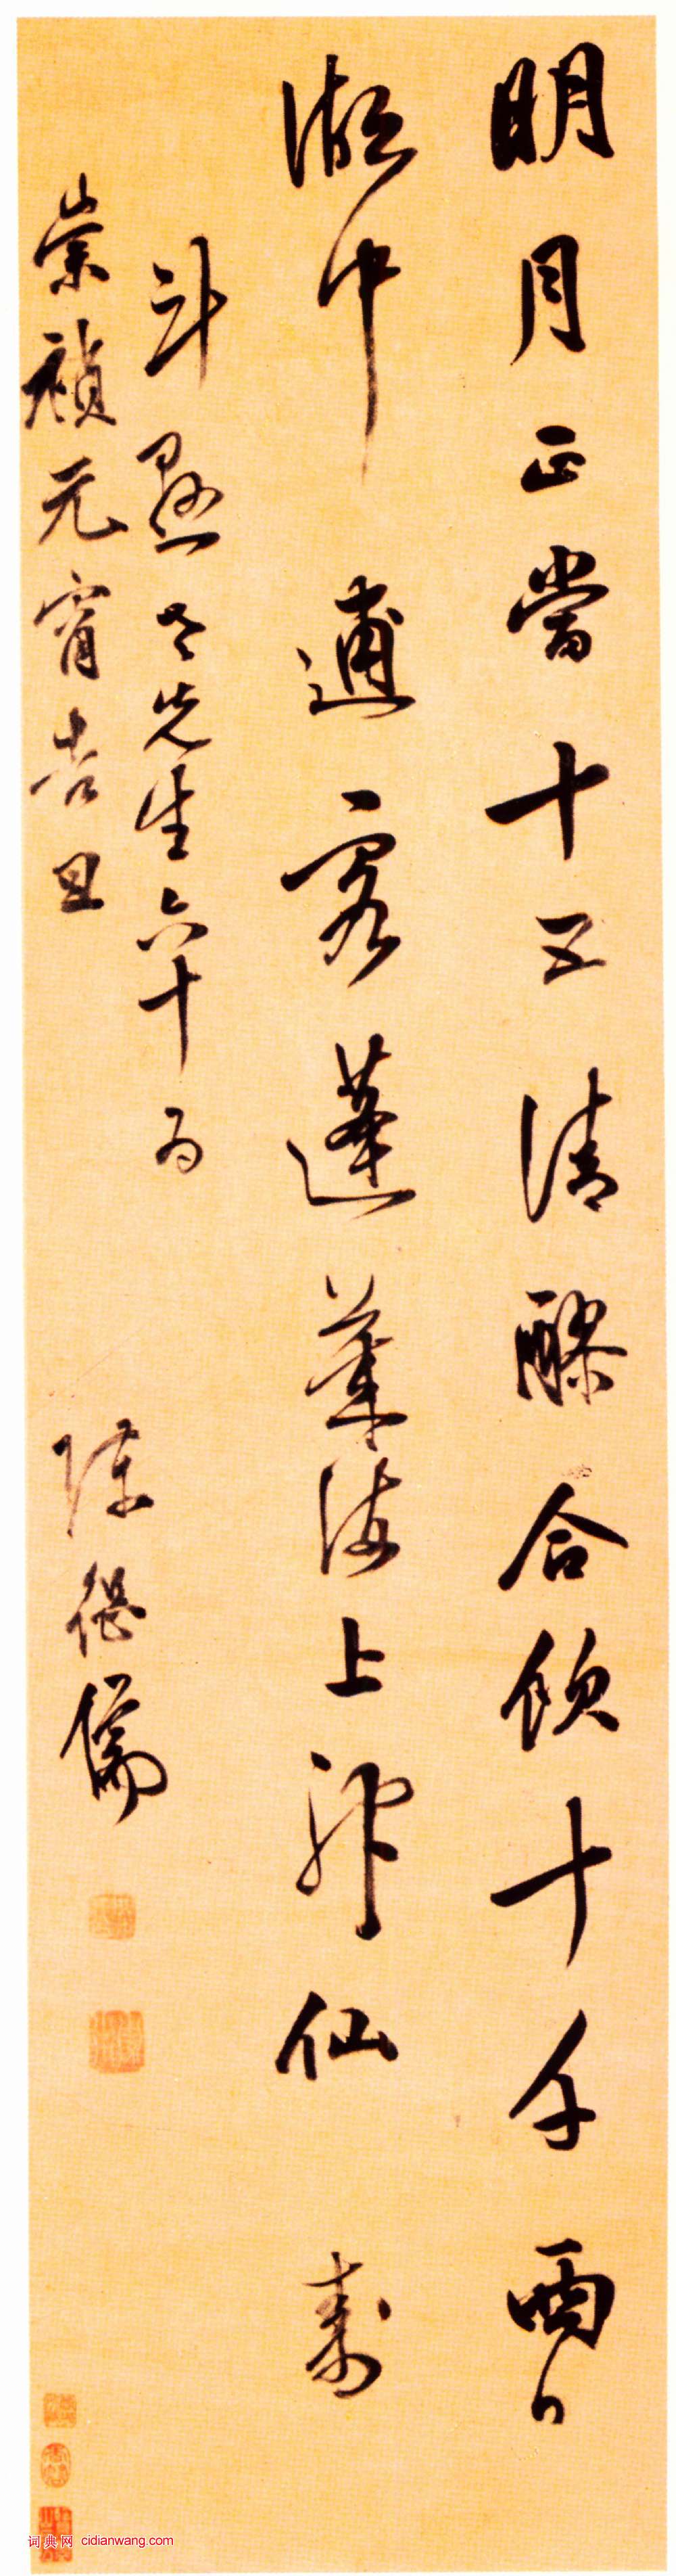 明月正當十五清醪合飲十千西
湖中逋客蓬萊海上神仙 壽
斗老先生六十為
崇禎元宵吉旦
陳繼儒
词典网 cidianwang.com